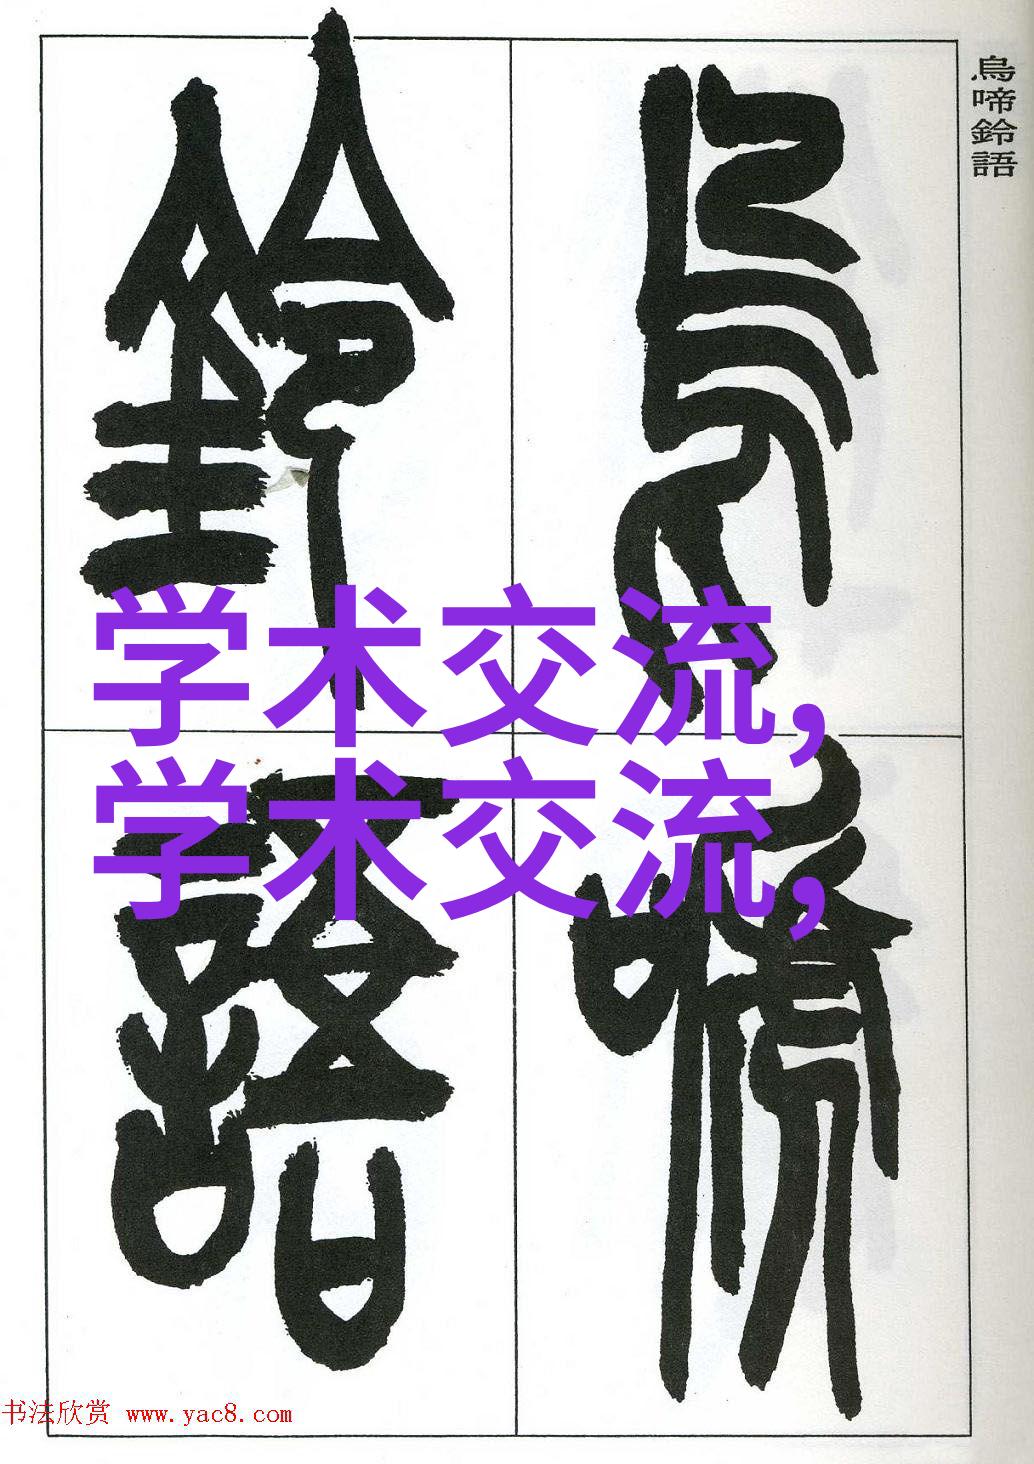 烏啼鈴語
烏啼
鈴語
学术交流,
学术交流,
书法欣赏 www.yac8.com